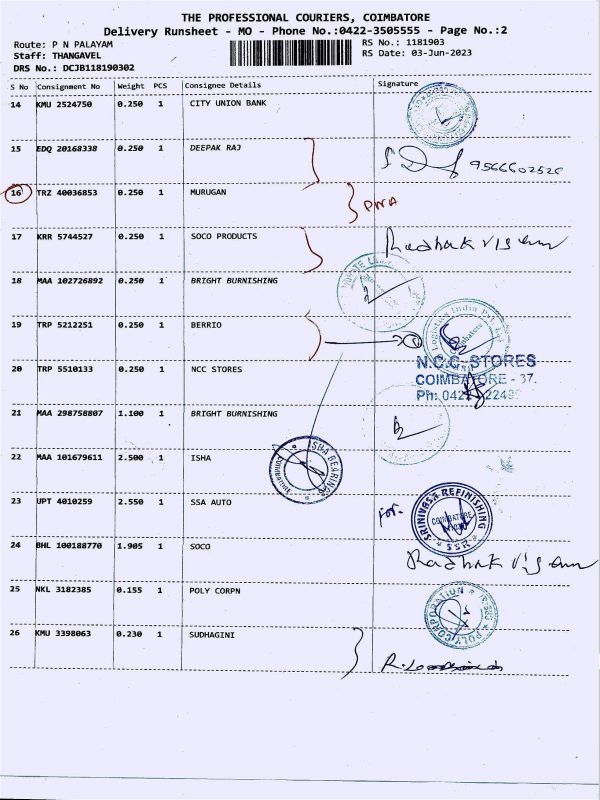 THE PROFESSIONAL COURIERS, COIMBATORE
Delivery Runsheet - MO - Phone No.:0422-3505555 - Page No.:2
Route: P N PALAYAM
RS No.: 1181903
Staff: THANGAVEL
RS Date: 03-Jun-2023
DRS No.: DCJB118190302
S No Consignment No Weight PCS Consignee Details Signature
14 KMU 2524750 0.250 1 CITY UNION BANK
15 EDQ 20168338 0.250 1 DEEPAK RAJ
9566602526
16 TRZ 40036853 0.250 1 MURUGAN
PNA
17 KRR 5744527 0.250 1 SOCO PRODUCTS
18 MAA 102726892 0.250 1 BRIGHT BURNISHING
19 TRP 5212251 0.250 1 BERRIO
20 TRP 5510133 0.250 1 NCC STORES
N.C.C. STORES
COIMBATORE - 37.
21 MAA 298758807 1.100 1 BRIGHT BURNISHING
22 MAA 101679611 2.500 1 ISHA
ISHA BEARINGS
23 UPT 4010259 2.550 1 SSA AUTO
For.
SRINIVASA REFINISHING
COIMBATORE
SSR
24 BHL 100188770 1.905 1 SOCO
25 NKL 3182385 0.155 1 POLY CORPN
POLY CORPORATION
26 KMU 3398063 0.230 1 SUDHAGINI